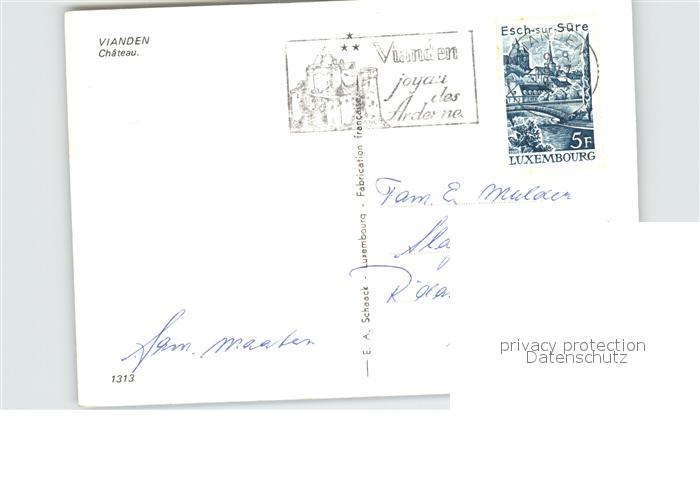 VIANDEN
Château.
Vianden
joyau
des
Ardenne
Esch-sur-Sûre
5F
LUXEMBOURG
Fam. E. Mulder
Fam. Maaten
1313
— E. A. Schaack - Luxembourg - Fabrication française
privacy protection
Datenschutz